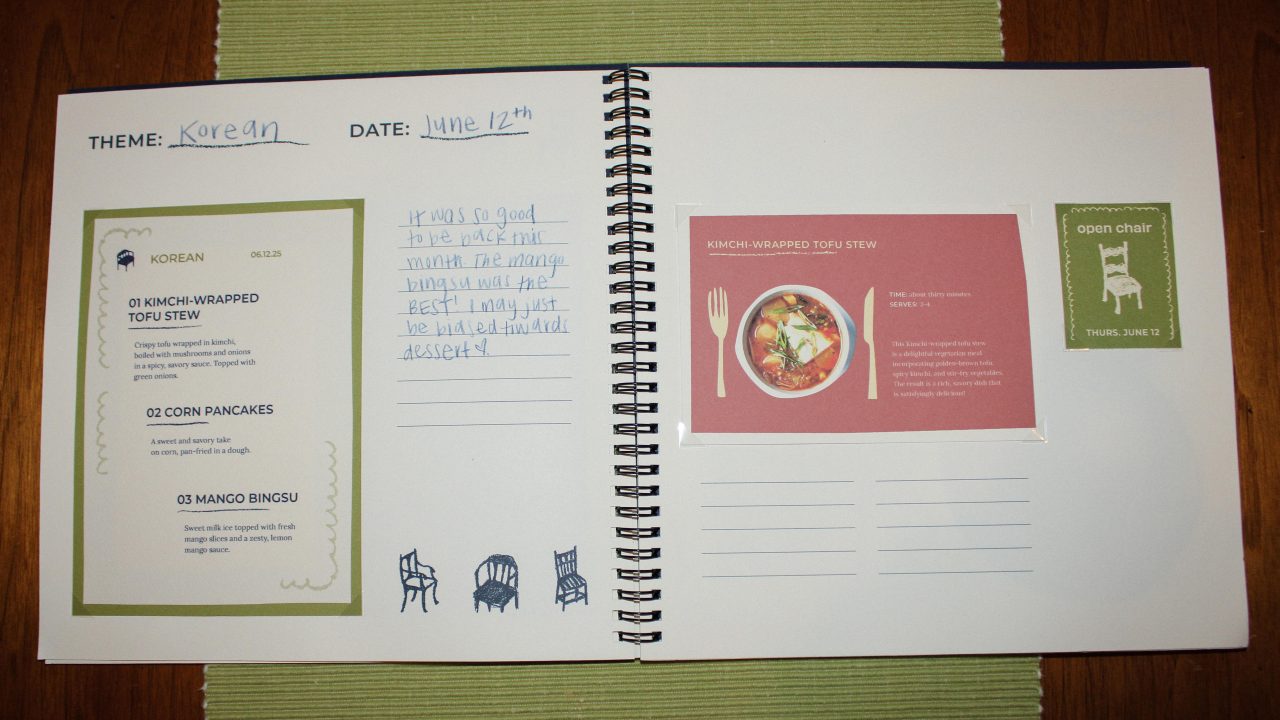 THEME: Korean DATE: June 12th
KOREAN 06.12.25
01 KIMCHI-WRAPPED
TOFU STEW
Crispy tofu wrapped in kimchi,
boiled with mushrooms and onions
in a spicy, savory sauce. Topped with
green onions.
02 CORN PANCAKES
A sweet and savory take
on corn, pan-fried in a dough.
03 MANGO BINGSU
Sweet milk ice topped with fresh
mango slices and a zesty, lemon
mango sauce.
It was so good
to be back this
month. The mango
bingsu was the
BEST! I may just
be biased twards
dessert
KIMCHI-WRAPPED TOFU STEW
TIME: about thirty minutes
SERVES: 2-4
This Kimchi-wrapped tofu stew
is a delightful vegetarian meal
incorporating golden-brown tofu,
spicy kimchi, and stir-fry vegetables.
The result is a rich, savory dish that
is satisfyingly delicious!
open chair
THURS. JUNE 12